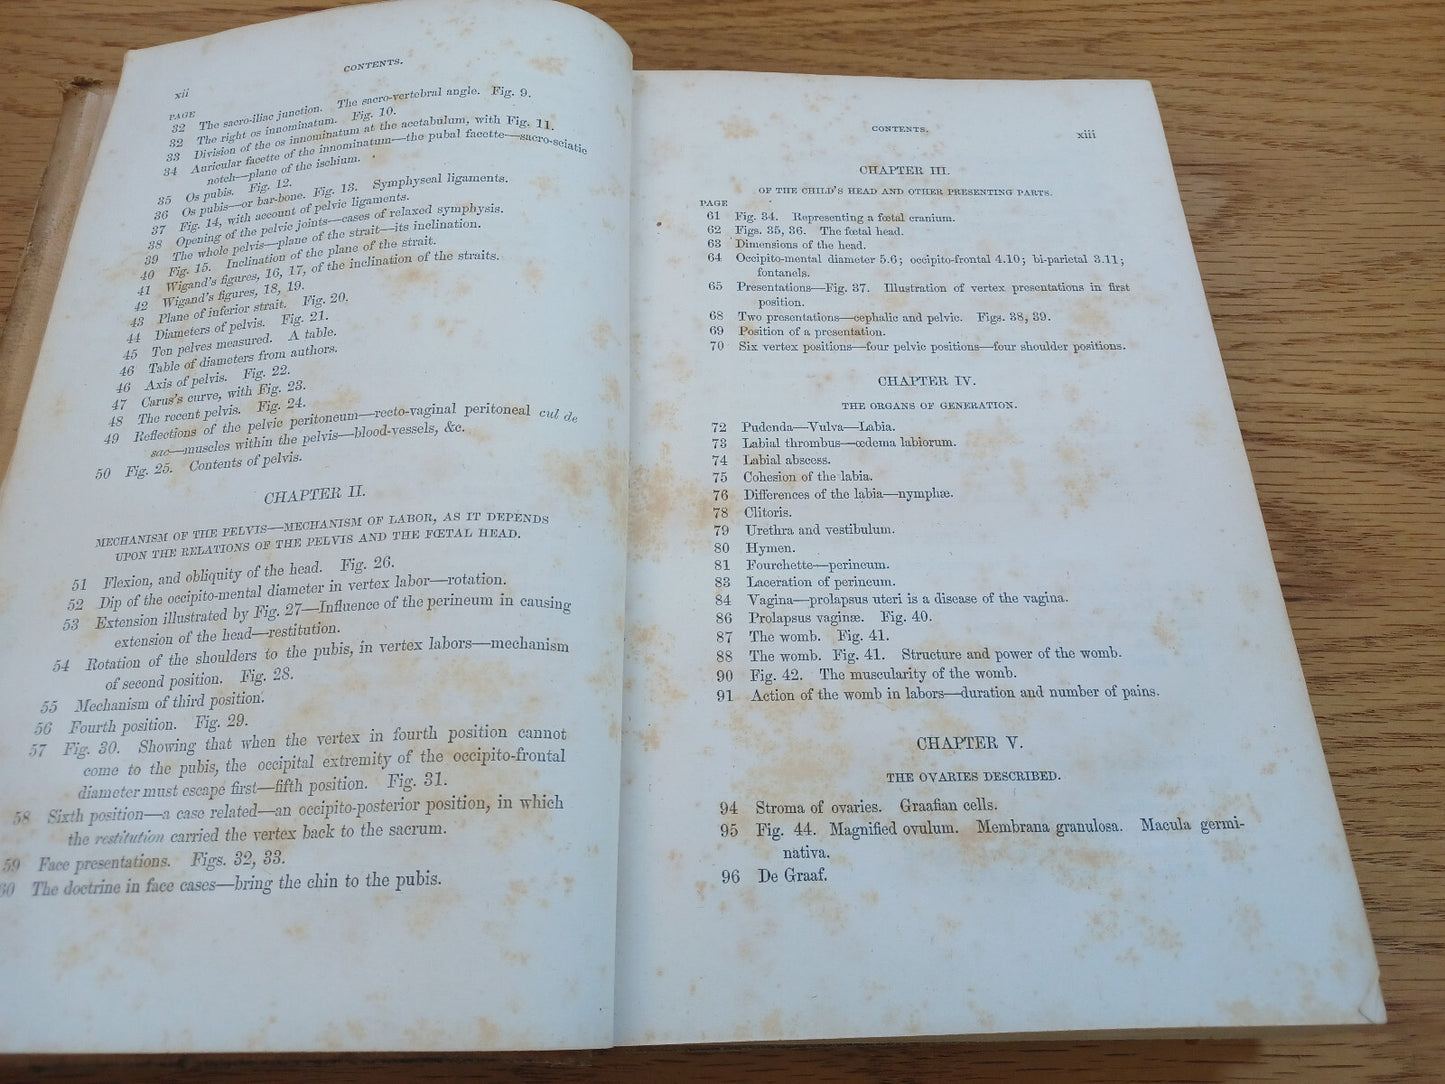 xii
CONTENTS.
PAGE
32 The sacro-iliac junction. The sacro-vertebral angle. Fig. 9.
32 The right os innominatum. Fig. 10.
33 Division of the os innominatum at the acetabulum, with Fig. 11.
34 Auricular facette of the innominatum—the pubal facette—sacro-sciatic
notch—plane of the ischium.
35 Os pubis. Fig. 12.
36 Os pubis—or bar-bone. Fig. 13. Symphyseal ligaments.
37 Fig. 14, with account of pelvic ligaments.
38 Opening of the pelvic joints—cases of relaxed symphysis.
39 The whole pelvis—plane of the strait—its inclination.
40 Fig. 15. Inclination of the plane of the strait.
41 Wigand's figures, 16, 17, of the inclination of the straits.
42 Wigand's figures, 18, 19.
43 Plane of inferior strait. Fig. 20.
44 Diameters of pelvis. Fig. 21.
45 Ten pelves measured. A table.
46 Table of diameters from authors.
46 Axis of pelvis. Fig. 22.
47 Carus's curve, with Fig. 23.
48 The recent pelvis. Fig. 24.
49 Reflections of the pelvic peritoneum—recto-vaginal peritoneal cul de
sac—muscles within the pelvis—blood-vessels, &c.
50 Fig. 25. Contents of pelvis.
CHAPTER II.
MECHANISM OF THE PELVIS—MECHANISM OF LABOR, AS IT DEPENDS
UPON THE RELATIONS OF THE PELVIS AND THE FŒTAL HEAD.
51 Flexion, and obliquity of the head. Fig. 26.
52 Dip of the occipito-mental diameter in vertex labor—rotation.
53 Extension illustrated by Fig. 27—Influence of the perineum in causing
extension of the head—restitution.
54 Rotation of the shoulders to the pubis, in vertex labors—mechanism
of second position. Fig. 28.
55 Mechanism of third position.
56 Fourth position. Fig. 29.
57 Fig. 30. Showing that when the vertex in fourth position cannot
come to the pubis, the occipital extremity of the occipito-frontal
diameter must escape first—fifth position. Fig. 31.
58 Sixth position—a case related—an occipito-posterior position, in which
the restitution carried the vertex back to the sacrum.
59 Face presentations. Figs. 32, 33.
60 The doctrine in face cases—bring the chin to the pubis.
CONTENTS.
xiii
CHAPTER III.
OF THE CHILD'S HEAD AND OTHER PRESENTING PARTS.
PAGE
61 Fig. 34. Representing a fœtal cranium.
62 Figs. 35, 36. The fœtal head.
63 Dimensions of the head.
64 Occipito-mental diameter 5.6; occipito-frontal 4.10; bi-parietal 3.11;
fontanels.
65 Presentations—Fig. 37. Illustration of vertex presentations in first
position.
68 Two presentations—cephalic and pelvic. Figs. 38, 39.
69 Position of a presentation.
70 Six vertex positions—four pelvic positions—four shoulder positions.
CHAPTER IV.
THE ORGANS OF GENERATION.
72 Pudenda—Vulva—Labia.
73 Labial thrombus—œdema labiorum.
74 Labial abscess.
75 Cohesion of the labia.
76 Differences of the labia—nymphæ.
78 Clitoris.
79 Urethra and vestibulum.
80 Hymen.
81 Fourchette—perineum.
83 Laceration of perineum.
84 Vagina—prolapsus uteri is a disease of the vagina.
86 Prolapsus vaginæ. Fig. 40.
87 The womb. Fig. 41.
88 The womb. Fig. 41. Structure and power of the womb.
90 Fig. 42. The muscularity of the womb.
91 Action of the womb in labors—duration and number of pains.
CHAPTER V.
THE OVARIES DESCRIBED.
94 Stroma of ovaries. Graafian cells.
95 Fig. 44. Magnified ovulum. Membrana granulosa. Macula germi-
nativa.
96 De Graaf.